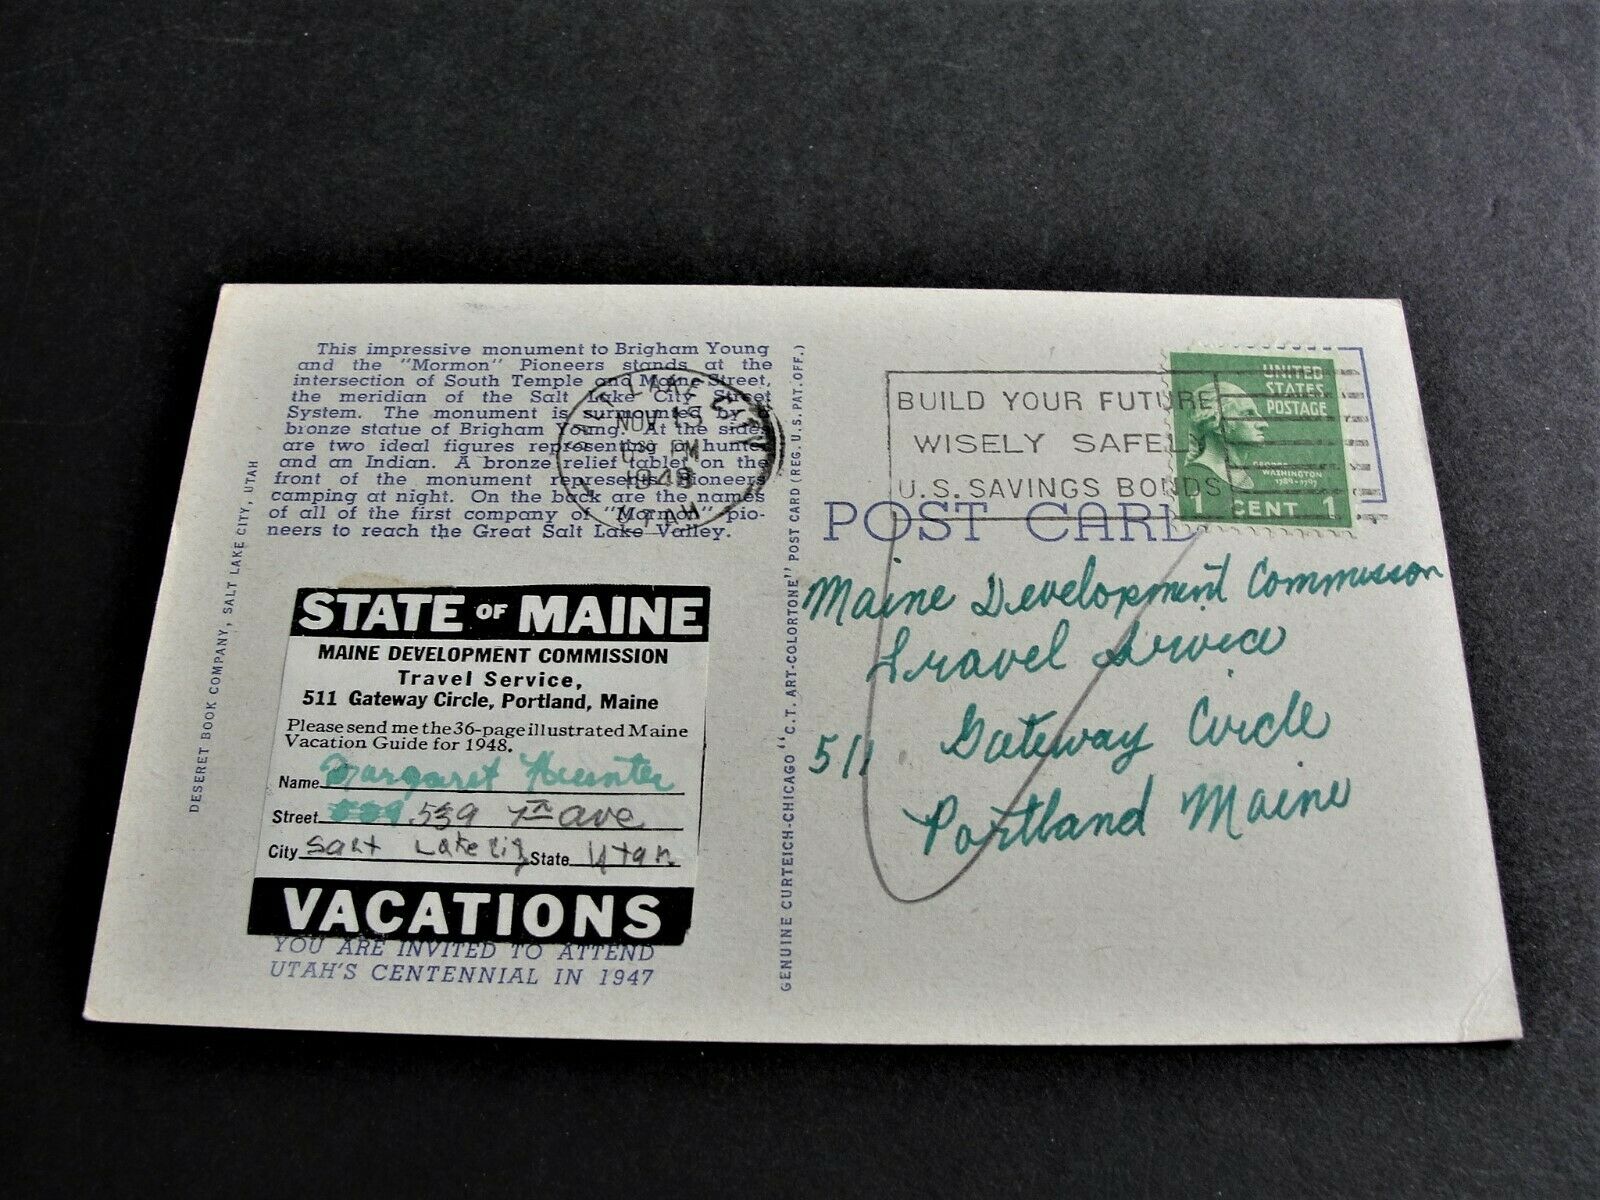 This impressive monument to Brigham Young
and the "Mormon" Pioneers stands at the
intersection of South Temple and Maine Street,
the meridian of the Salt Lake City Street
System. The monument is surmounted by a
bronze statue of Brigham Young. At the sides
are two ideal figures representing a hunter
and an Indian. A bronze relief tablet on the
front of the monument represents Pioneers
camping at night. On the back are the names
of all of the first company of "Mormon" pio-
neers to reach the Great Salt Lake Valley.
SALT LAKE CITY
NOV
PM
1948
UTAH
DESERET BOOK COMPANY, SALT LAKE CITY, UTAH
STATE OF MAINE
MAINE DEVELOPMENT COMMISSION
Travel Service,
511 Gateway Circle, Portland, Maine
Please send me the 36-page illustrated Maine
Vacation Guide for 1948.
Name Margaret Hunter
Street 539 7th Ave
City Salt Lake City State Utah
VACATIONS
YOU ARE INVITED TO ATTEND
UTAH'S CENTENNIAL IN 1947
GENUINE CURTEICH-CHICAGO "C.T. ART-COLORTONE" POST CARD (REG. U.S. PAT. OFF.)
BUILD YOUR FUTURE
WISELY SAFELY
U.S. SAVINGS BONDS
UNITED
STATES
POSTAGE
GEORGE
WASHINGTON
1789-1797
1 CENT 1
POST CARD
Maine Development Commission
Travel Service
511 Gateway Circle
Portland Maine